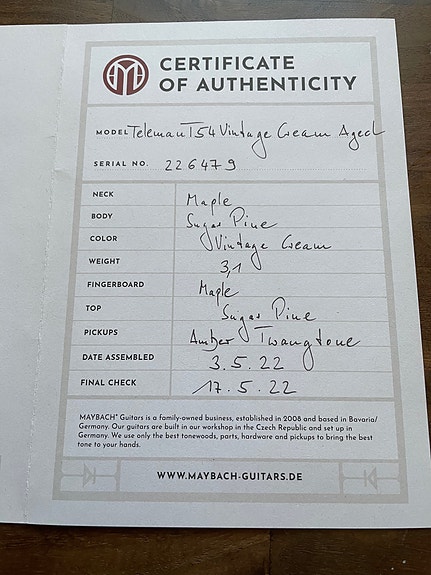 CERTIFICATE
OF AUTHENTICITY
MODEL Teleman T54 Vintage Cream Aged
SERIAL NO. 226479
NECK Maple
BODY Sugar Pine
COLOR Vintage Cream
WEIGHT 3,1
FINGERBOARD Maple
TOP Sugar Pine
PICKUPS Amber Twangtone
DATE ASSEMBLED 3.5.22
FINAL CHECK 17.5.22
MAYBACH® Guitars is a family-owned business, established in 2008 and based in Bavaria/
Germany. Our guitars are built in our workshop in the Czech Republic and set up in
Germany. We use only the best tonewoods, parts, hardware and pickups to bring the best
tone to your hands.
WWW.MAYBACH-GUITARS.DE